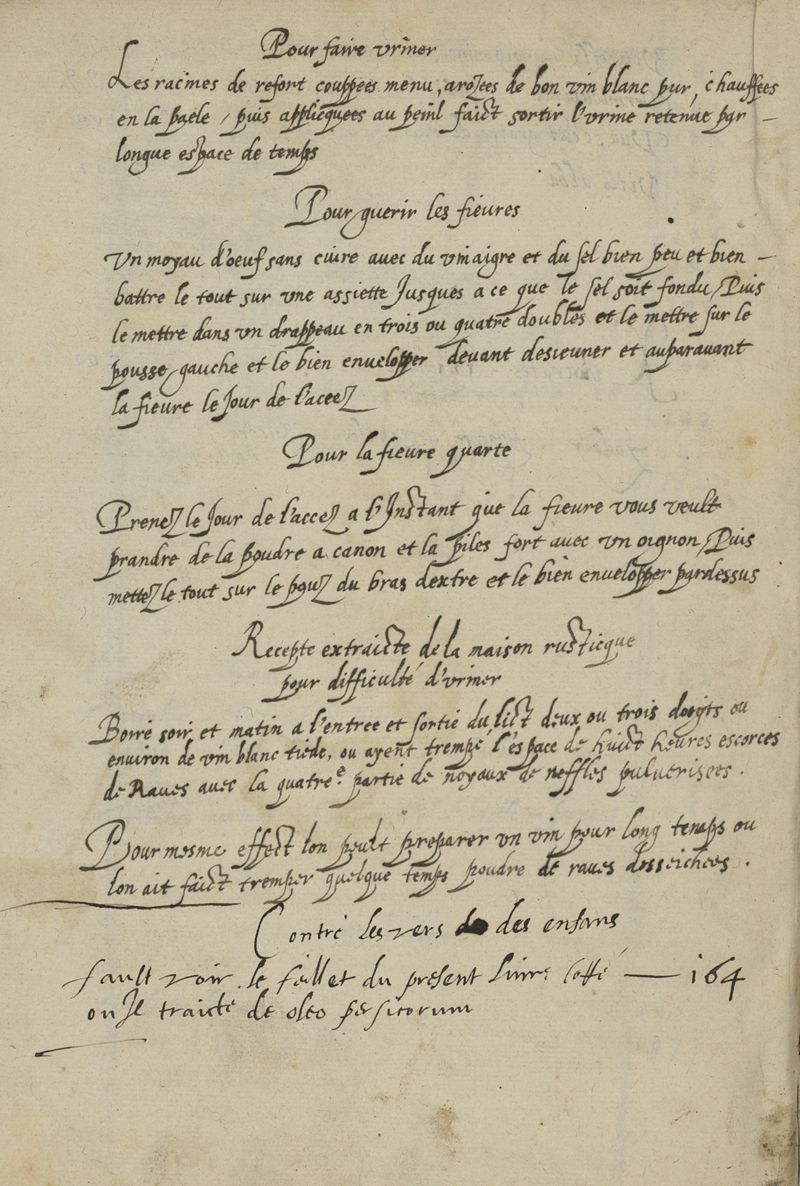 Pour faire vriner
Les racines de refort couppees menu, arozees de bon vin blanc pur, chauffees
en la paele / puis applicquees au penil faict sortir l'vrine retenue par –
longue espace de temps
Pour guerir les fieures
Vn moyau d'oeuf sans cuire avec du vinaigre et du sel bien peu et bien –
battre le tout sur vne assiette Jusques a ce que le sel soit fondu / Puis
le mettre dans vn drappeau en trois ou quatre doubles et le mettre sur le
pousse gauche et le bien envelopper devant desieuner et auparauant
la fieure le Jour de l'accez
Pour la fieure quarte
Prenez le Jour de l'accez a l'Instant que la fieure vous veult
prandre de la poudre a canon et la piles fort avec vn oignon / Puis
mettez le tout sur le pouz du bras dextre et le bien envelopper pardessus
Recepte extraicte de la maison rusticque
pour difficulté d'vriner
Boire soir et matin a l'entree et sortie du lict deux ou trois doigts ou
environ de vin blanc tiede, ou ayent trempé l'espace de huict heures escorces
de Raves avec la quatre.e partie de noyaux de neffles pulverisees.
Pour mesme effect lon peult preparer vn vin pour long temps ou
lon ait faict tremper quelque temps poudre de raves desseichees.
Contre les vers des enfans
fault voir le fueillet du present livre cotté — 164
ou Jl traicte de oleo persicorum